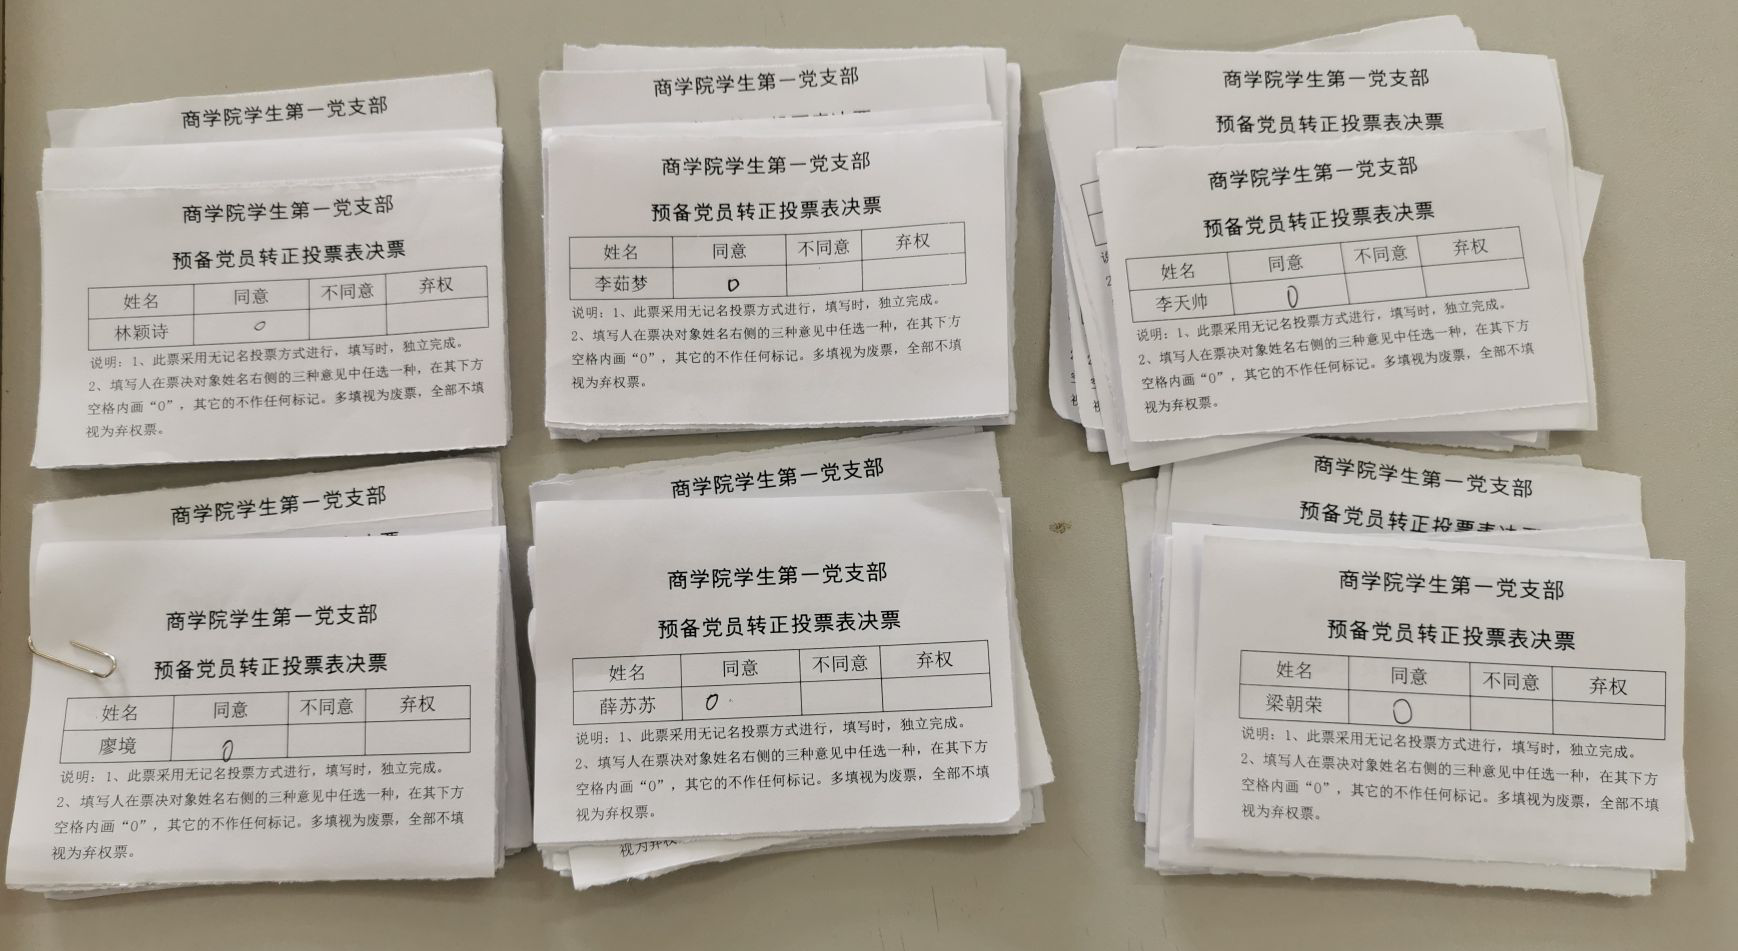 商学院学生第一党支部
商学院学生第一党支部
预备党员转正投票表决票
姓名 同意 不同意 弃权
林颖诗 0
说明：1、此票采用无记名投票方式进行，填写时，独立完成。
2、填写人在票决对象姓名右侧的三种意见中任选一种，在其下方
空格内画“0”，其它的不作任何标记。多填视为废票，全部不填
视为弃权票。
商学院学生第一党支部
商学院学生第一党支部
预备党员转正投票表决票
姓名 同意 不同意 弃权
李茹梦 0
说明：1、此票采用无记名投票方式进行，填写时，独立完成。
2、填写人在票决对象姓名右侧的三种意见中任选一种，在其下方
空格内画“0”，其它的不作任何标记。多填视为废票，全部不填
视为弃权票。
商学院学生第一党支部
预备党员转正投票表决票
商学院学生第一党支部
预备党员转正投票表决票
姓名 同意 不同意 弃权
李天帅 0
说明：1、此票采用无记名投票方式进行，填写时，独立完成。
2、填写人在票决对象姓名右侧的三种意见中任选一种，在其下方
空格内画“0”，其它的不作任何标记。多填视为废票，全部不填
视为弃权票。
商学院学生第一党支部
商学院学生第一党支部
预备党员转正投票表决票
姓名 同意 不同意 弃权
廖境 0
说明：1、此票采用无记名投票方式进行，填写时，独立完成。
2、填写人在票决对象姓名右侧的三种意见中任选一种，在其下方
空格内画“0”，其它的不作任何标记。多填视为废票，全部不填
视为弃权票。
商学院学生第一党支部
商学院学生第一党支部
预备党员转正投票表决票
姓名 同意 不同意 弃权
薛苏苏 0
说明：1、此票采用无记名投票方式进行，填写时，独立完成。
2、填写人在票决对象姓名右侧的三种意见中任选一种，在其下方
空格内画“0”，其它的不作任何标记。多填视为废票，全部不填
视为弃权票。
视为弃权
商学院学生第一党支部
预备党员转正投票表决票
商学院学生第一党支部
预备党员转正投票表决票
姓名 同意 不同意 弃权
梁朝荣 0
说明：1、此票采用无记名投票方式进行，填写时，独立完成。
2、填写人在票决对象姓名右侧的三种意见中任选一种，在其下方
空格内画“0”，其它的不作任何标记。多填视为废票，全部不填
视为弃权票。